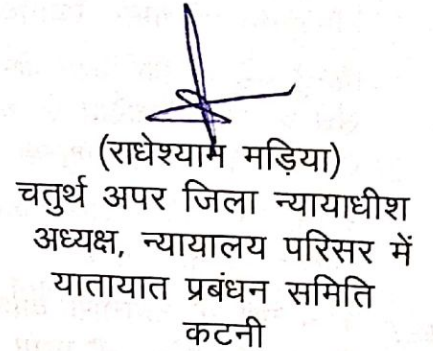 (राधेश्याम मड़िया)
चतुर्थ अपर जिला न्यायाधीश
अध्यक्ष, न्यायालय परिसर में
यातायात प्रबंधन समिति
कटनी